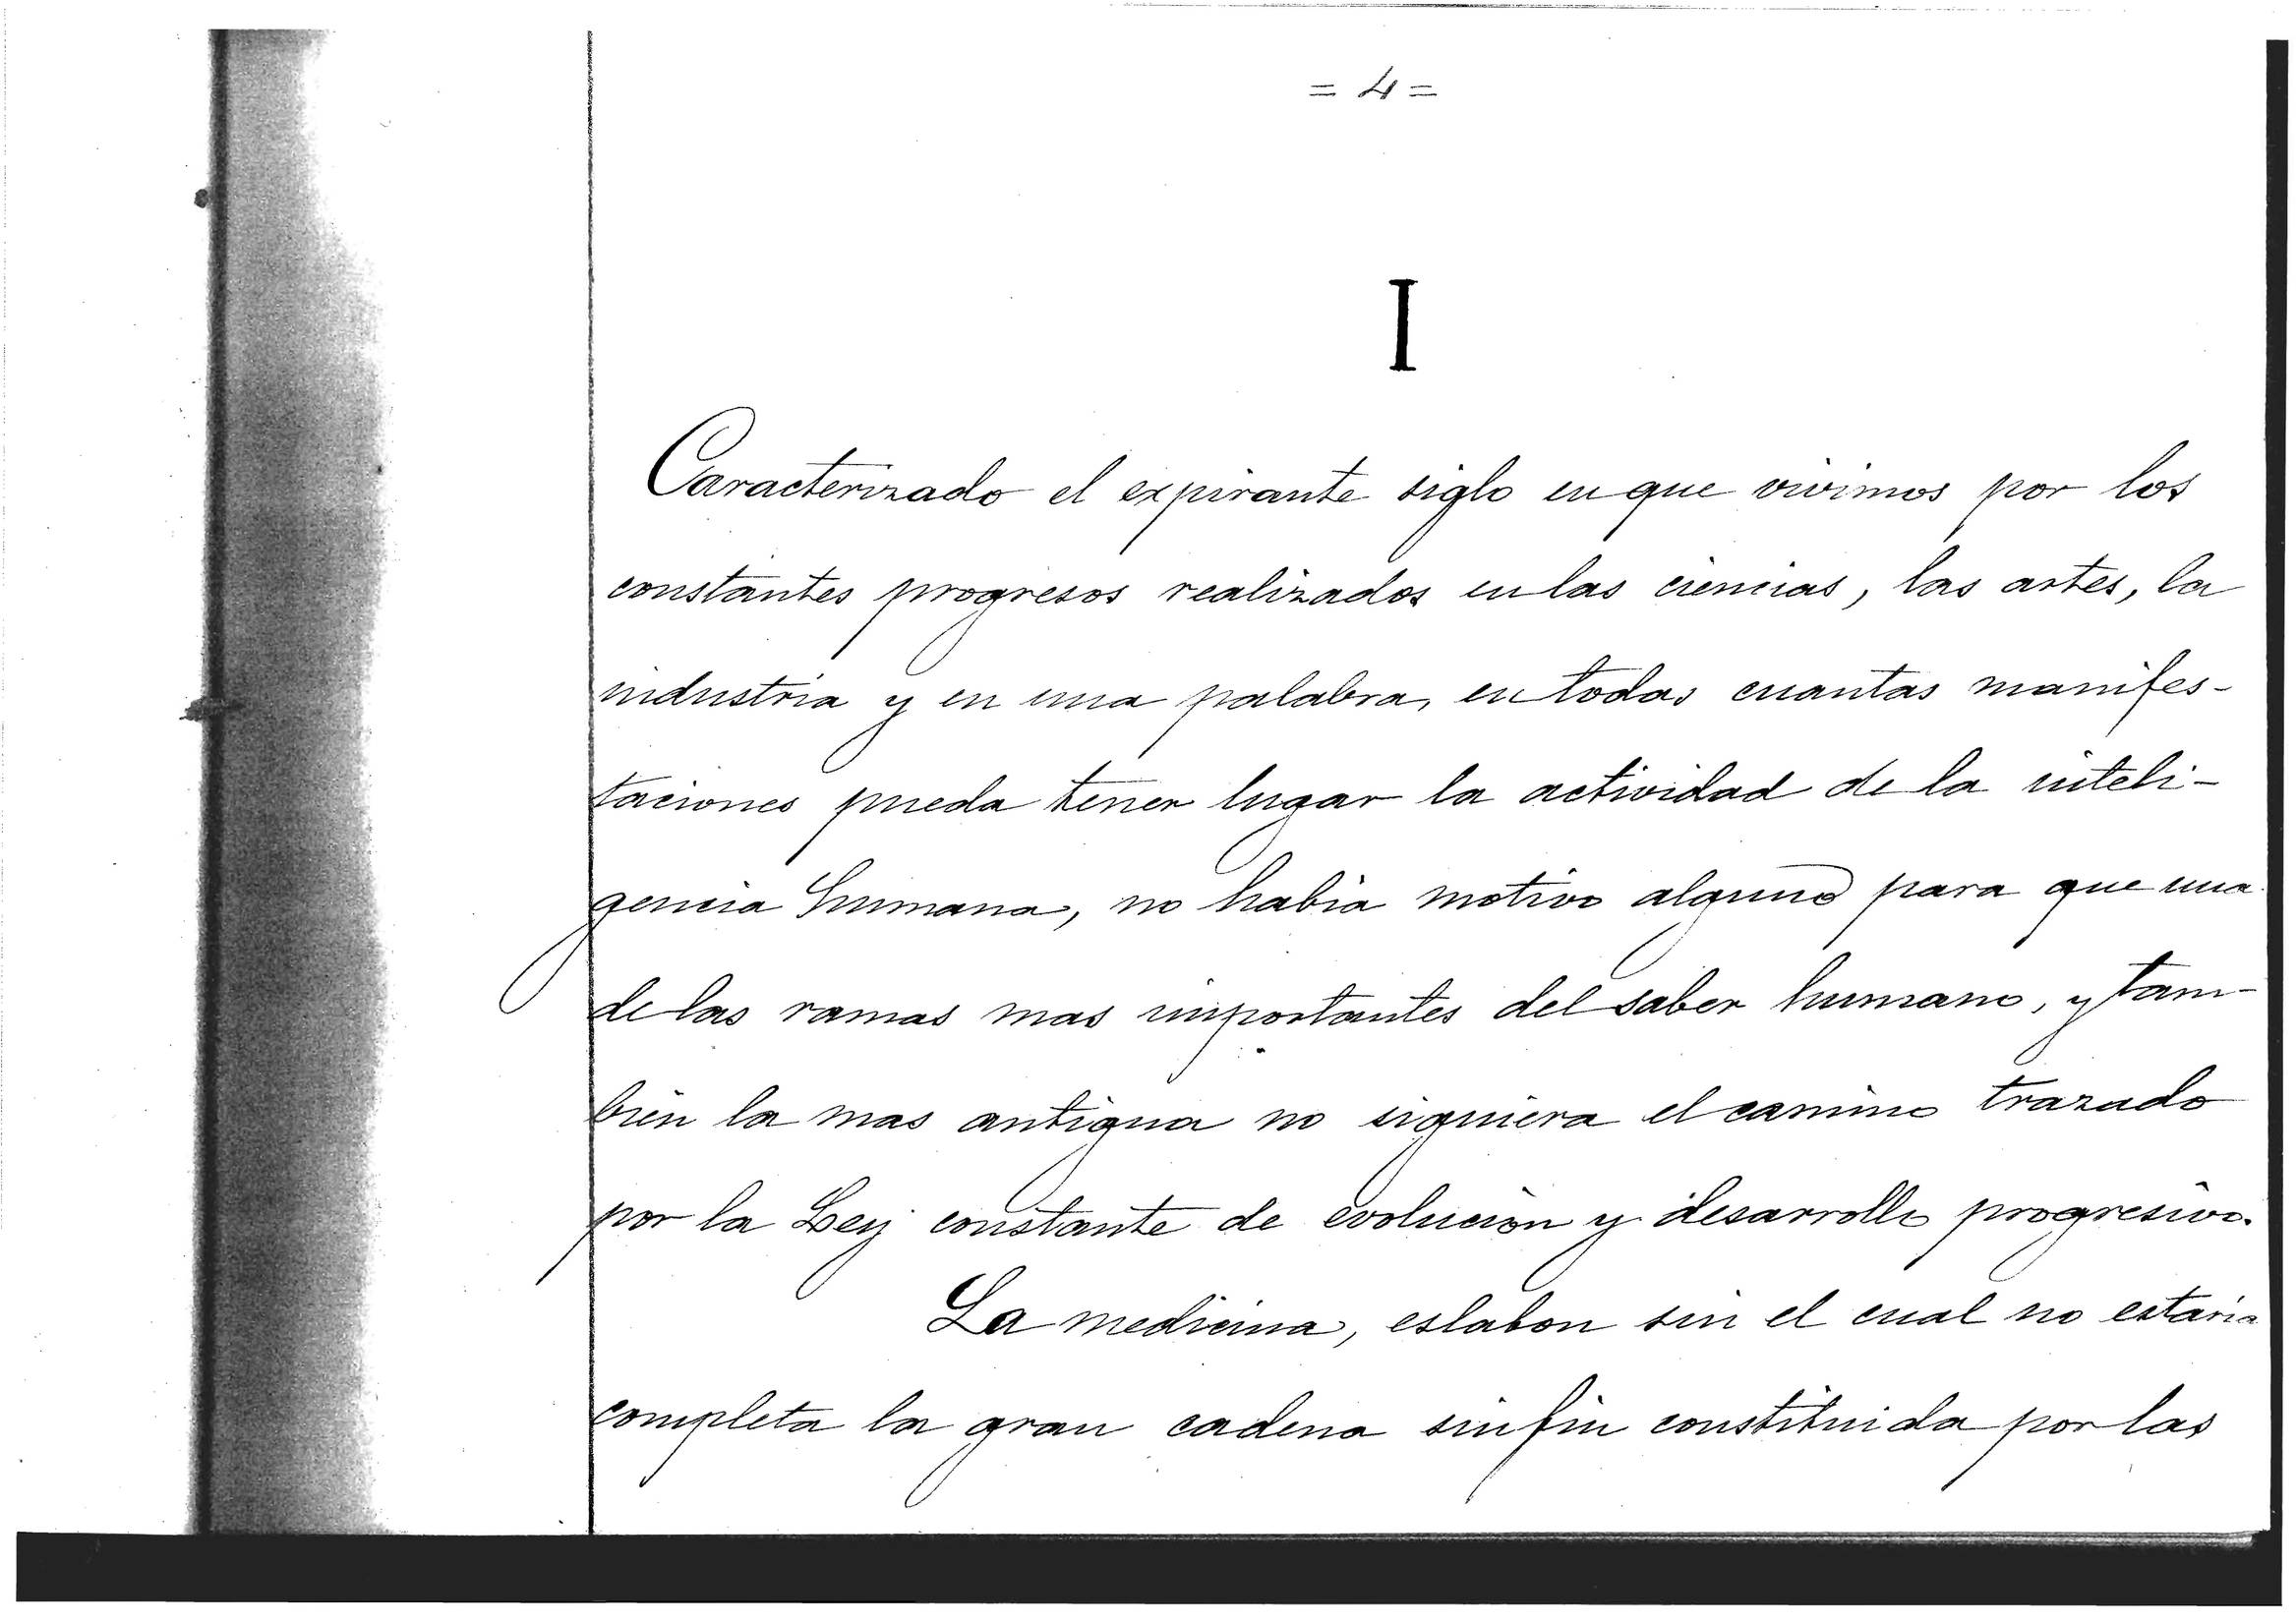 = 4 =
I
Caracterizado el expirante siglo en que vivimos por los
constantes progresos realizados en las ciencias, las artes, la
industria y en una palabra, en todas cuantas manifes-
taciones pueda tener lugar la actividad de la inteli-
gencia humana, no habia motivo alguno para que una
de las ramas mas importantes del saber humano, y tam-
bien la mas antigua no siguiera el camino trazado
por la Ley constante de evolución y desarrollo progresivo.
La medicina, eslabon sin el cual no estaría
completa la gran cadena sin fin constituida por las